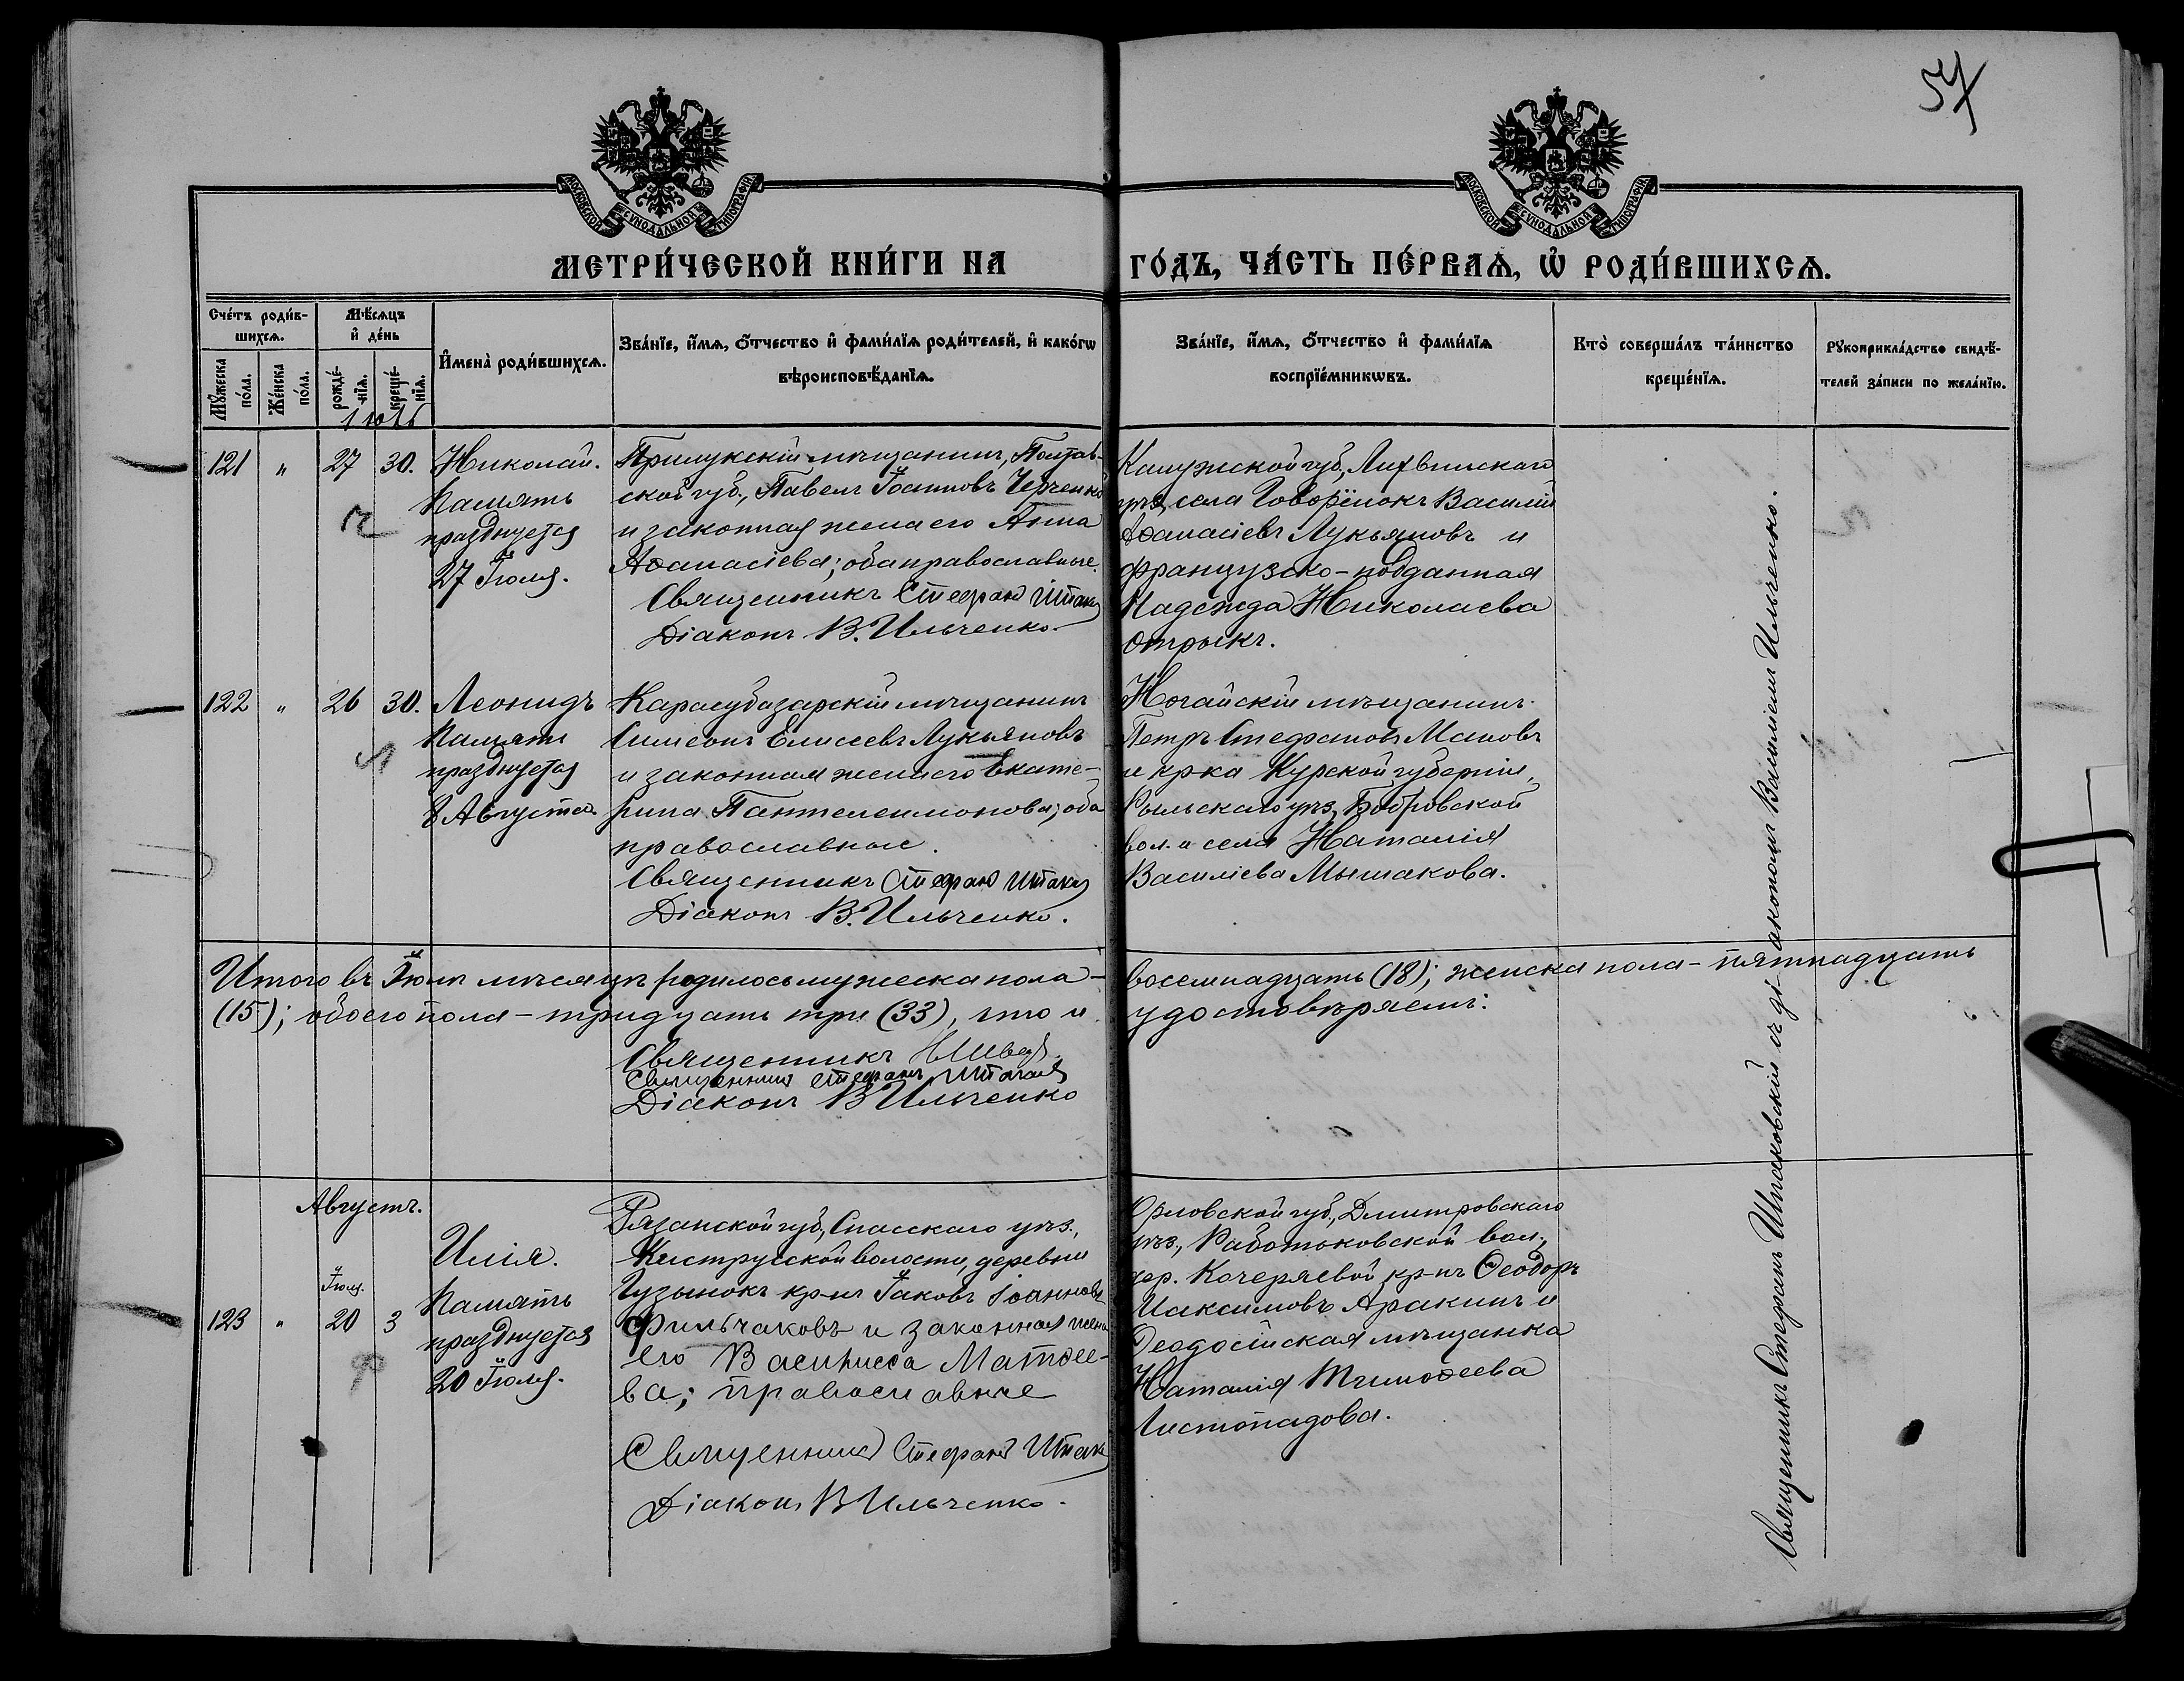 57
МОСКОВСКОЙ СѴНОДАЛЬНОЙ ТИПОГРАФІИ
МОСКОВСКОЙ СѴНОДАЛЬНОЙ ТИПОГРАФІИ
МЕТРИ́ЧЕСКОЙ КНИ́ГИ НА ГО́ДЪ, ЧА́СТЬ ПЕ́РВАѦ, Ѡ҆ РОДИ́ВШИХСѦ.
Сче́тъ роди́в-
шихсѧ.
Мѣ́сѧцъ
и҆ де́нь
Мꙋ́жеска по́ла.
Же́нска по́ла.
рожде́-нїѧ.
креще́-нїѧ.
И҆мена̀ роди́вшихсѧ.
Зва́нїе, и҆́мѧ, ѻ҆́тчество и҆ фами́лїѧ роди́телей, и҆ како́гѡ
вѣроисповѣ́данїѧ.
Зва́нїе, и҆́мѧ, ѻ҆́тчество и҆ фами́лїѧ
воспрїе́мникѡвъ.
Кто̀ соверша́лъ та́инство
креще́нїѧ.
Рꙋкоприкла́дство свидѣ́-
телей за́писи по жела́нїю.
Іюль
121 " 27 30. Николай.
Память
празднуется
27 Іюля.
Прилукскій мѣщанинъ, Полтав-
ской губ., Павелъ Іоанновъ Черченко
и законная жена его Анна
Аѳанасіева; оба православные.
Священникъ Стефанъ Шпак
Діаконъ В. Ильченко.
Калужской губ., Лихвинскаго
уѣз, села Говорёнокъ Василій
Аѳанасіевъ Лукьяновъ и
французско-подданная
Надежда Николаева
Отрыкъ.
122 " 26 30. Леонидъ
Память
празднуется
8 Августа.
Карасубазарскій мѣщанинъ
Симеонъ Елисеевъ Лукьяновъ
и законная жена его Екате-
рина Пантелеимонова; оба
православные.
Священникъ Стефанъ Шпак
Діаконъ В. Ильченко.
Ногайскій мѣщанинъ
Петръ Стефановъ Мановъ
и кр-ка Курской губерніи,
Рыльскаго уѣз, Бобровской
вол. и села Наталія
Василіева Мышакова.
Итого въ Іюлѣ мѣсяцѣ родилось мужеска пола - восемнадцать (18); женска пола - пятнадцать
(15); обоего пола - тридцать три (33), что и удостовѣряемъ:
Священникъ
Священникъ Стефанъ
Діаконъ В Ильченко
Августъ.
Іюля.
123 " 20 3
Илія.
Память
празднуется
20 Іюля.
Рязанской губ., Спасскаго уѣз.,
Киструсской волости, деревни
Гузынокъ кр-нъ Іаковъ Іоанновъ
Фильчаковъ и законная жена
его Василисса Матѳее-
ва; православные
Священникъ Стефанъ Шпак
Діаконъ В Ильченко.
Орловской губ., Дмитровскаго
уѣз., Работьковской вол.,
дер. Кочерягевой кр-нъ Ѳеодоръ
Максимовъ Аракинъ и
Ѳеодосійская мѣщанка
Наталія Тимоѳеева
Листопадова.
Священникъ Стефанъ Шпаковскій съ діакономъ Василіемъ Ильченко.